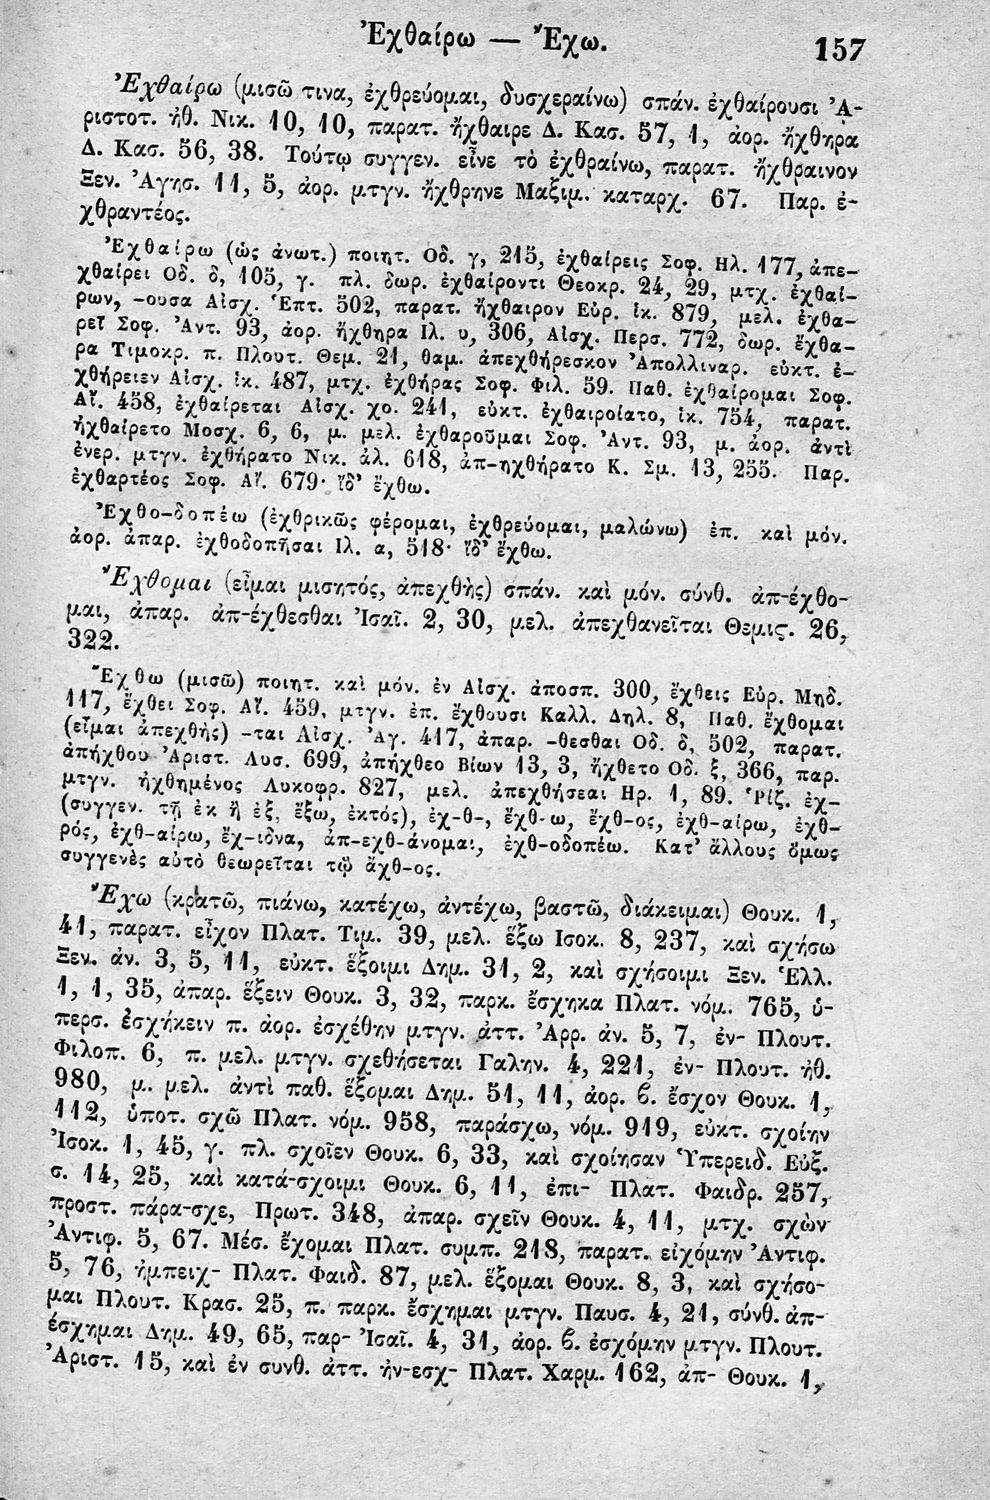 Ἐχθαίρω — Ἔχω. 157
Ἐχθαίρω (μισῶ τινα, ἐχθρεύομαι, δυσχεραίνω) σπάν. ἐχθαίρουσι Ἀ-
ριστοτ. ἠθ. Νικ. 10, 10, παρατ. ἤχθαιρε Δ. Κασ. 57, 1, ἀορ. ἤχθηρα
Δ. Κασ. 56, 38. Τούτῳ συγγεν. εἶνε τὸ ἐχθραίνω, παρατ. ἤχθραινον
Ξεν. Ἀγησ. 11, 5, ἀορ. μτγν. ἤχθρηνε Μαξιμ. καταρχ. 67. Παρ. ἐ-
χθραντέος.
Ἐχθαίρω (ὡς ἀνωτ.) ποιητ. Οδ. γ, 215, ἐχθαίρεις Σοφ. Ηλ. 177, ἀπε-
χθαίρει Οδ. δ, 105, γ. πλ. δωρ. ἐχθαίροντι Θεοκρ. 24, 29, μτχ. ἐχθαί-
ρων, -ουσα Αἰσχ. Ἑπτ. 502, παρατ. ἤχθαιρον Εὐρ. ἱκ. 879, μελ. ἐχθα-
ρεῖ Σοφ. Ἀντ. 93, ἀορ. ἤχθηρα Ιλ. υ, 306, Αἰσχ. Περσ. 772, δωρ. ἔχθα-
ρα Τιμοκρ. π. Πλουτ. Θεμ. 21, θαμ. ἀπεχθήρεσκον Ἀπολλιναρ. εὐκτ. ἐ-
χθήρειεν Αἰσχ. ἱκ. 487, μτχ. ἐχθήρας Σοφ. Φιλ. 59. Παθ. ἐχθαίρομαι Σοφ.
Αἴ. 458, ἐχθαίρεται Αἰσχ. χο. 241, εὐκτ. ἐχθαιροίατο, ἱκ. 754, παρατ.
ἠχθαίρετο Μοσχ. 6, 6, μ. μελ. ἐχθαροῦμαι Σοφ. Ἀντ. 93, μ. ἀορ. ἀντὶ
ἐνερ. μτγν. ἐχθήρατο Νικ. ἀλ. 618, ἀπ-ηχθήρατο Κ. Σμ. 13, 255. Παρ.
ἐχθαρτέος Σοφ. Αἴ. 679· ἴδ' ἔχθω.
Ἐχθο-δοπέω (ἐχθρικῶς φέρομαι, ἐχθρεύομαι, μαλώνω) ἐπ. καὶ μόν.
ἀορ. ἀπαρ. ἐχθοδοπῆσαι Ιλ. α, 518· ἴδ' ἔχθω.
Ἔχθομαι (εἶμαι μισητός, ἀπεχθὴς) σπάν. καὶ μόν. σύνθ. ἀπ-έχθο-
μαι, ἀπαρ. ἀπ-έχθεσθαι Ἰσαῖ. 2, 30, μελ. ἀπεχθανεῖται Θεμις. 26,
322.
Ἔχθω (μισῶ) ποιητ. καὶ μόν. ἐν Αἰσχ. ἀποσπ. 300, ἔχθεις Εὐρ. Μηδ.
117, ἔχθει Σοφ. Αἴ. 459, μτγν. ἐπ. ἔχθουσι Καλλ. Δηλ. 8, Παθ. ἔχθομαι
(εἶμαι ἀπεχθὴς) -ται Αἰσχ. Ἀγ. 417, ἀπαρ. -θεσθαι Οδ. δ, 502, παρατ.
ἀπήχθου Ἀριστ. Λυσ. 699, ἀπήχθεο Βίων 13, 3, ἤχθετο Οδ. ξ, 366, παρ.
μτγν. ἠχθημένος Λυκοφρ. 827, μελ. ἀπεχθήσεαι Ηρ. 1, 89. Ῥίζ. ἐχ-
(συγγεν. τῇ ἐκ ἢ ἐξ, ἔξω, ἐκτός), ἐχ-θ-, ἔχθ-ω, ἔχθ-ος, ἐχθ-αίρω, ἐχθ-
ρός, ἐχθ-αίρω, ἔχ-ιδνα, ἀπ-εχθ-άνομαι, ἐχθ-οδοπέω. Κατ' ἄλλους ὅμως
συγγενὲς αὐτὸ θεωρεῖται τῷ ἄχθ-ος.
Ἔχω (κρατῶ, πιάνω, κατέχω, ἀντέχω, βαστῶ, διάκειμαι) Θουκ. 1,
41, παρατ. εἶχον Πλατ. Τιμ. 39, μελ. ἕξω Ισοκ. 8, 237, καὶ σχήσω
Ξεν. ἀν. 3, 5, 11, εὐκτ. ἕξοιμι Δημ. 31, 2, καὶ σχήσοιμι Ξεν. Ἑλλ.
1, 1, 35, ἀπαρ. ἕξειν Θουκ. 3, 32, παρκ. ἔσχηκα Πλατ. νόμ. 765, ὑ-
περσ. ἐσχήκειν π. ἀορ. ἐσχέθην μτγν. ἀττ. Ἀρρ. ἀν. 5, 7, ἐν- Πλουτ.
Φιλοπ. 6, π. μελ. μτγν. σχεθήσεται Γαλην. 4, 221, ἐν- Πλουτ. ἠθ.
980, μ. μελ. ἀντὶ παθ. ἕξομαι Δημ. 51, 11, ἀορ. β. ἔσχον Θουκ. 1,
112, ὑποτ. σχῶ Πλατ. νόμ. 958, παράσχω, νόμ. 919, εὐκτ. σχοίην
Ἰσοκ. 1, 45, γ. πλ. σχοῖεν Θουκ. 6, 33, καὶ σχοίησαν Ὑπερειδ. Εὐξ.
σ. 14, 25, καὶ κατά-σχοιμι Θουκ. 6, 11, ἐπι- Πλατ. Φαιδρ. 257,
προστ. πάρα-σχε, Πρωτ. 348, ἀπαρ. σχεῖν Θουκ. 4, 11, μτχ. σχὼν
Ἀντιφ. 5, 67. Μέσ. ἔχομαι Πλατ. συμπ. 218, παρατ. εἰχόμην Ἀντιφ.
5, 76, ἠμπειχ- Πλατ. Φαιδ. 87, μελ. ἕξομαι Θουκ. 8, 3, καὶ σχήσο-
μαι Πλουτ. Κρασ. 25, π. παρκ. ἔσχημαι μτγν. Παυσ. 4, 21, σύνθ. ἀπ-
έσχημαι Δημ. 49, 65, παρ- Ἰσαῖ. 4, 31, ἀορ. β. ἐσχόμην μτγν. Πλουτ.
Ἀριστ. 15, καὶ ἐν συνθ. ἀττ. ἠν-εσχ- Πλατ. Χαρμ. 162, ἀπ- Θουκ. 1,